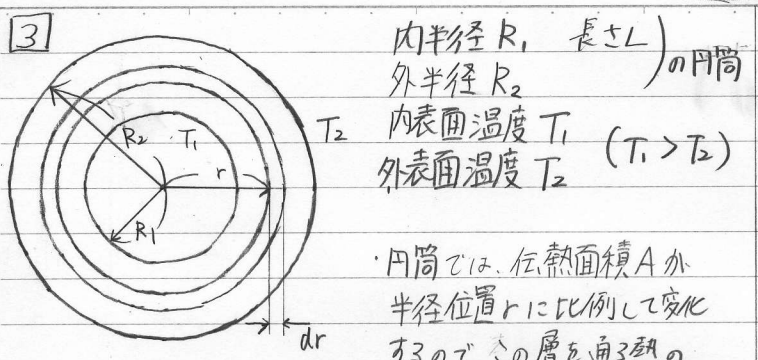 3
R₂
T₁
T₂
r
R₁
dr
内半径 R₁ 長さL
外半径 R₂
)の円筒
内表面温度 T₁
外表面温度 T₂
(T₁ > T₂)
・円筒では、伝熱面積Aが
半径位置rに比例して変化
するので、この層を通る熱の